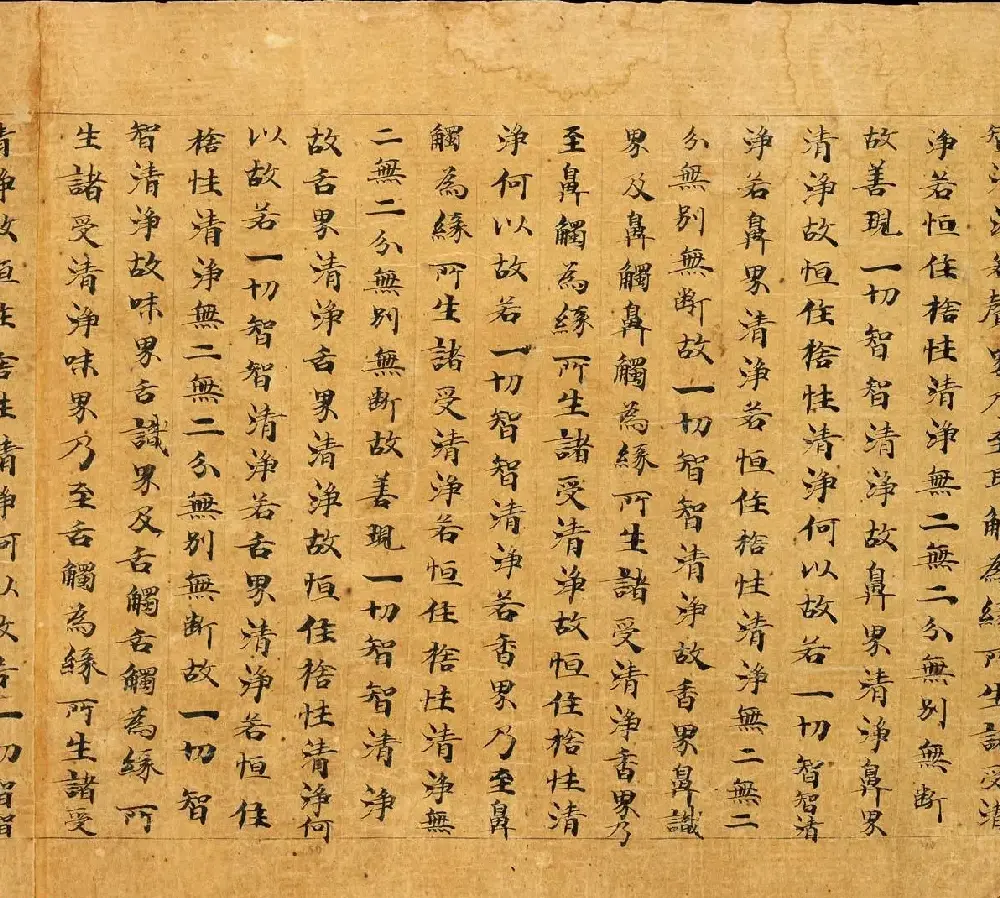 智清淨若聲界乃至耳觸為緣所生諸受清
淨若恒住捨性清淨無二無二分無別無断
故善現一切智智清淨故鼻界清淨鼻界
清淨故恒住捨性清淨何以故若一切智智清
淨若鼻界清淨若恒住捨性清淨無二無二
分無別無断故一切智智清淨故香界鼻識
界及鼻觸鼻觸為緣所生諸受清淨香界乃
至鼻觸為緣所生諸受清淨故恒住捨性清
淨何以故若一切智智清淨若香界乃至鼻
觸為緣所生諸受清淨若恒住捨性清淨無
二無二分無別無断故善現一切智智清淨
故舌界清淨舌界清淨故恒住捨性清淨何
以故若一切智智清淨若舌界清淨若恒住
捨性清淨無二無二分無別無断故一切智
智清淨故味界舌識界及舌觸舌觸為緣所
生諸受清淨味界乃至舌觸為緣所生諸受
清淨故恒住捨性清淨何以故若一切智智